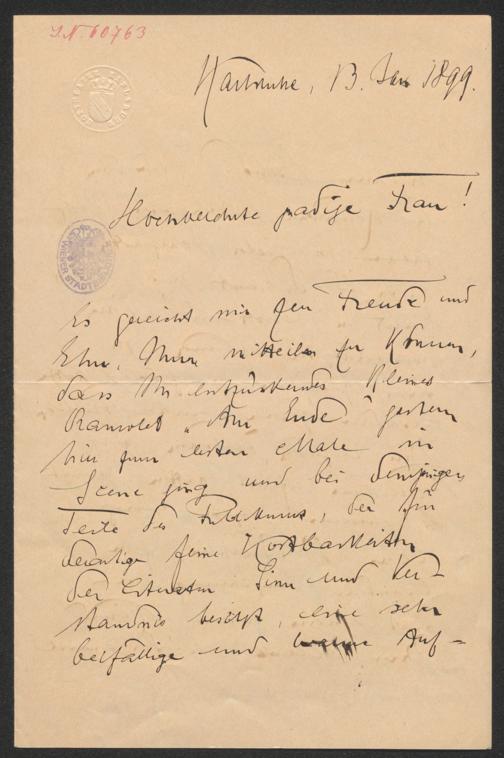 I.N. 60763
Karlsruhe, 13. Jan 1899.
Hochverehrte gnädige Frau!
Es gereicht mir zur Freude und
Ehre, Ihnen mitteilen zu können,
dass Ihr entzückendes kleines
Dramolet „Am Ende" gestern
hier zum ersten Male in
Scene ging und bei demjenigen
Teile des Publikums, der für
derartige feine Kostbarkeiten
der Literatur Sinn und Ver-
ständnis besitzt, eine sehr
beifällige und warme Auf-